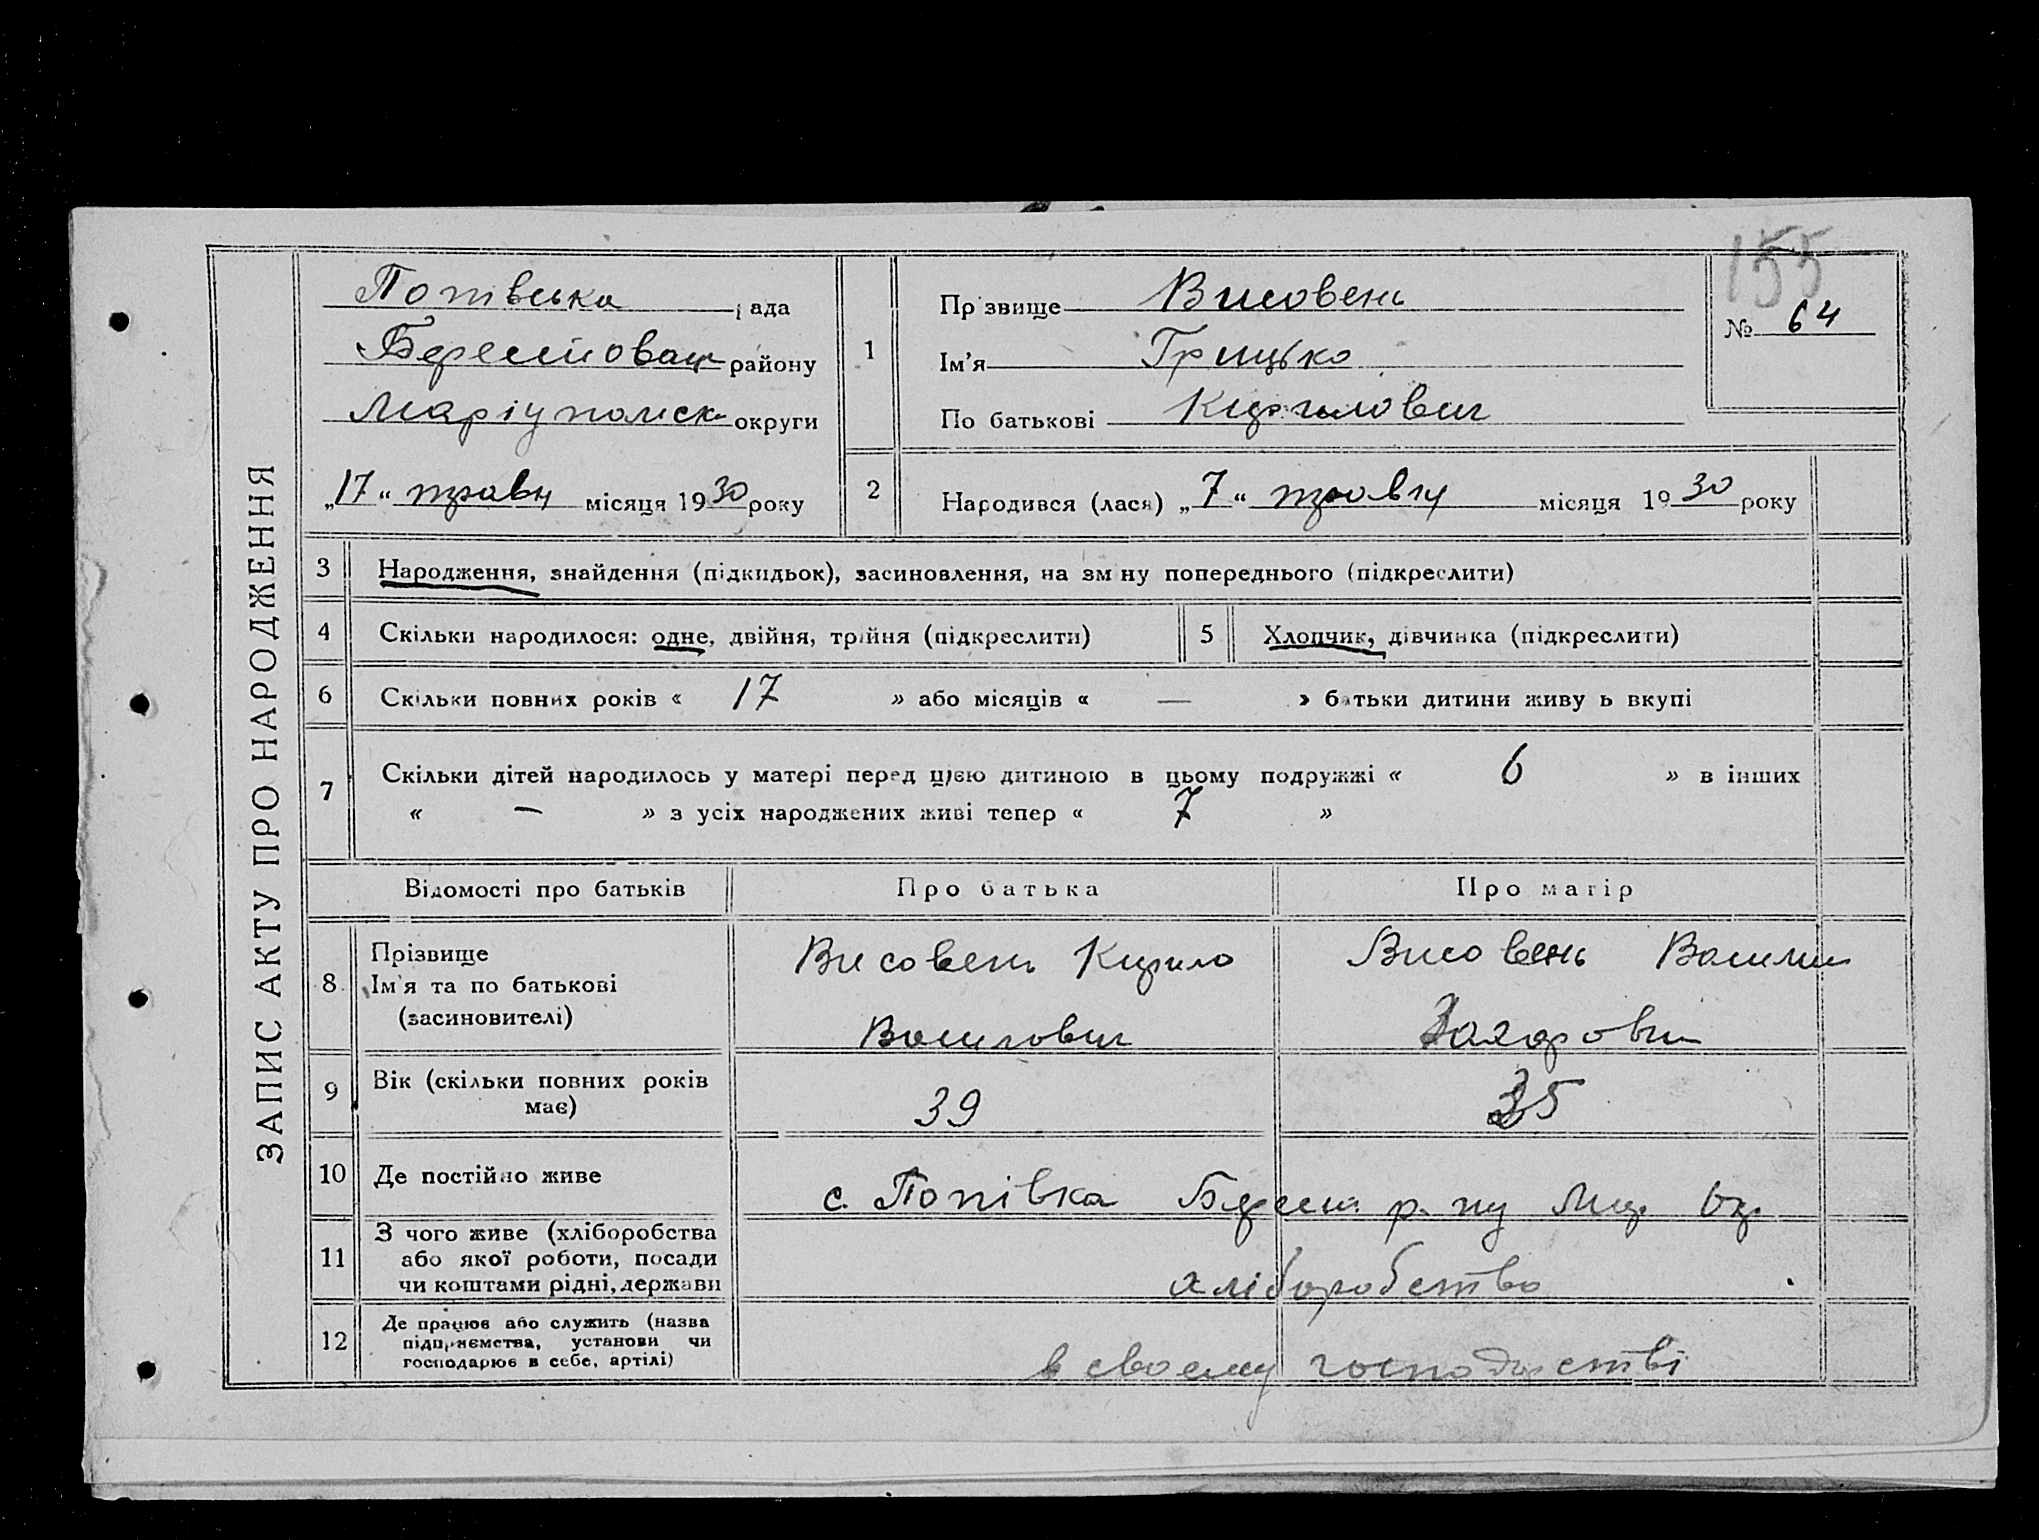 ЗАПИС АКТУ ПРО НАРОДЖЕННЯ
155
№ 64
Попівська рада
Берестовац району
Маріупольск округи
„17“ травн місяця 1930 року
1
Прізвище Висовень
Ім'я Грицько
По батькові Кирилович
2 Народився (лася) „7“ травня місяця 1930 року
3 Народження, знайдення (підкидьок), засиновлення, на зміну попереднього (підкреслити)
4 Скільки народилося: одне, двійня, трійня (підкреслити) 5 Хлопчик, дівчинка (підкреслити)
6 Скільки повних років « 17 » або місяців « — » батьки дитини живуть вкупі
7 Скільки дітей народилось у матері перед цією дитиною в цьому подружжі « 6 » в інших
« — » з усіх народжених живі тепер « 7 »
Відомості про батьків Про батька Про матір
8 Прізвище
Ім'я та по батькові
(засиновителі)
Висовень Кирило
Василович
Висовень Васили
Захаровн
9 Вік (скільки повних років
має)
39 35
10 Де постійно живе с. Попівка Берест р-ну Мар. Ок.
11 З чого живе (хліборобства
або якої роботи, посади
чи коштами рідні, держави
хліборобство
12 Де працює або служить (назва
підприємства, установи чи
господарює в себе, артілі)
в своему господарстві